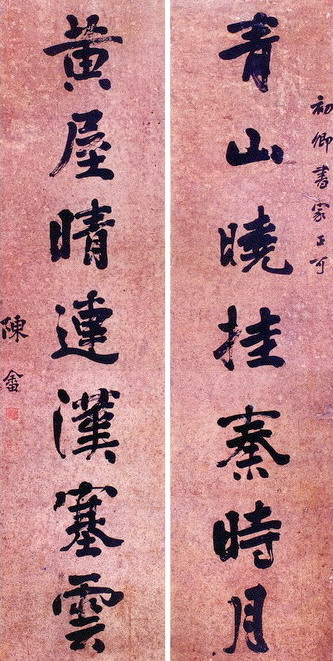 初卿書家正可
青山曉挂秦時月
黄屋晴連漢塞雲
陳